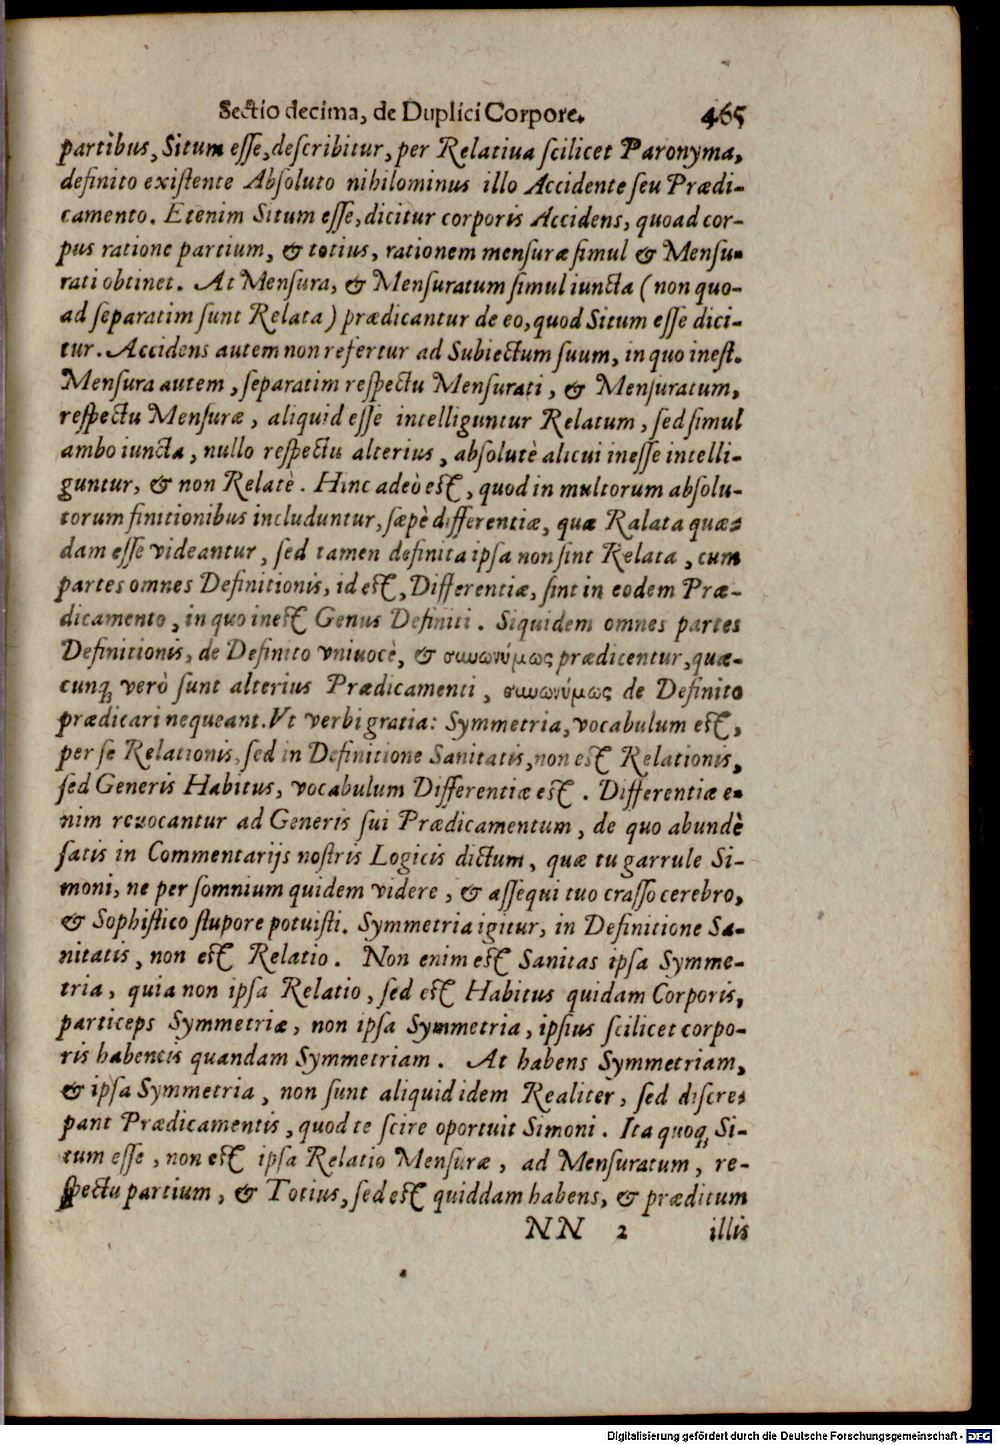 Sectio decima, de Duplici Corpore. 465
partibus, Situm esse, describitur, per Relatiua scilicet Paronyma,
definito existente Absoluto nihilominus illo Accidente seu Prædi-
camento. Etenim Situm esse, dicitur corporis Accidens, quoad cor-
pus ratione partium, & totius, rationem mensuræ simul & Mensu-
rati obtinet. At Mensura, & Mensuratum simul iuncta (non quo-
ad separatim sunt Relata) prædicantur de eo, quod Situm esse dici-
tur. Accidens autem non refertur ad Subiectum suum, in quo inest.
Mensura autem, separatim respectu Mensurati, & Mensuratum,
respectu Mensuræ, aliquid esse intelliguntur Relatum, sed simul
ambo iuncta, nullo respectu alterius, absolutè alicui inesse intelli-
guntur, & non Relatè. Hinc adeò est, quod in multorum absolu-
torum finitionibus includuntur, sæpè differentiæ, quæ Ralata quæ-
dam esse videantur, sed tamen definita ipsa non sint Relata, cum
partes omnes Definitionis, id est, Differentiæ, sint in eodem Præ-
dicamento, in quo inest Genus Definiti. Siquidem omnes partes
Definitionis, de Definito vniuocè, & συνωνύμως prædicentur, quæ-
cunq; verò sunt alterius Prædicamenti, συνωνύμως de Definito
prædicari nequeant. Vt verbi gratia: Symmetria, vocabulum est,
per se Relationis, sed in Definitione Sanitatis, non est Relationis,
sed Generis Habitus, vocabulum Differentiæ est. Differentiæ e-
nim revocantur ad Generis sui Prædicamentum, de quo abundè
satis in Commentarijs nostris Logicis dictum, quæ tu garrule Si-
moni, ne per somnium quidem videre, & assequi tuo crasso cerebro,
& Sophistico stupore potuisti. Symmetria igitur, in Definitione Sa-
nitatis, non est Relatio. Non enim est Sanitas ipsa Symme-
tria, quia non ipsa Relatio, sed est Habitus quidam Corporis,
particeps Symmetriæ, non ipsa Symmetria, ipsius scilicet corpo-
ris habentis quandam Symmetriam. At habens Symmetriam,
& ipsa Symmetria, non sunt aliquid idem Realiter, sed discre-
pant Prædicamentis, quod te scire oportuit Simoni. Ita quoq; Si-
tum esse, non est ipsa Relatio Mensuræ, ad Mensuratum, re-
spectu partium, & Totius, sed est quiddam habens, & præditum
NN 2 illis
Digitalisierung gefördert durch die Deutsche Forschungsgemeinschaft - DFG